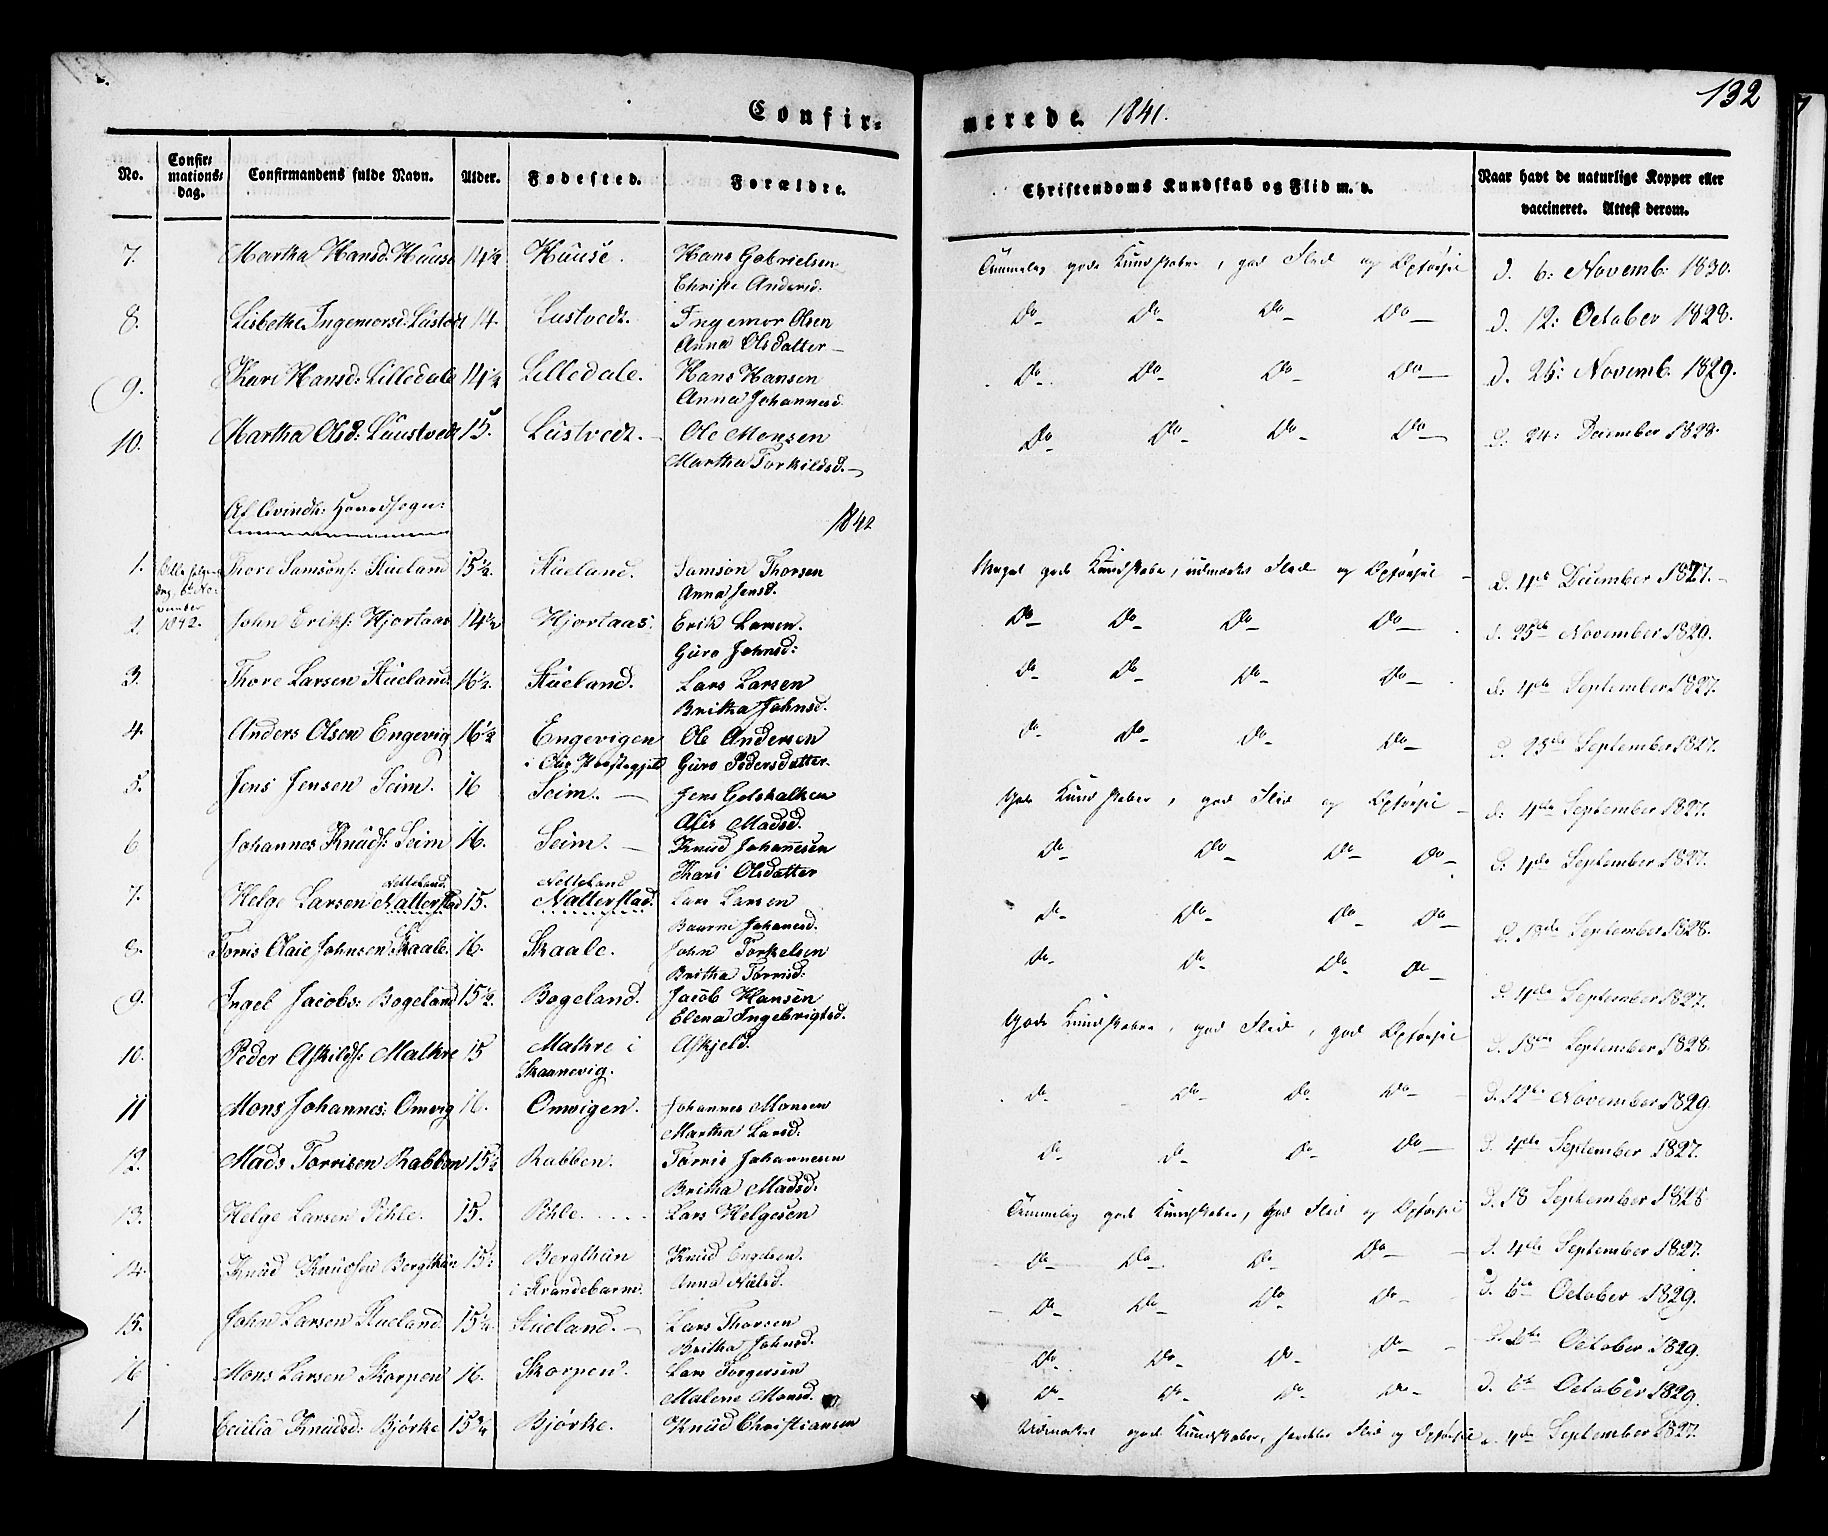 132
Confirmerede. 1841.
No. Confirmationsdag. Confirmandens fulde Navn. Alder. Fødested. Forældre. Christendoms Kundskab og Flid m. v. Naar havt de naturlige Kopper eller vaccineret. Attest derom.
7. Martha Hansd: Huuse 14½ Huuse. Hans Gabrielsen Temmelig gode Kundskaber, god Flid og Opførsel d. 6: Novemb: 1830.
Christi Andersd:
8. Lisbethe Ingemorsd: Lustvedt 14. Lustvedt. Ingemor Olsen Do Do Do Do d. 12: October 1828.
Anna Olsdatter
9. Kari Hansd: Lilledale 14½ Lilledale. Hans Hansen Do Do Do Do d. 25: Novemb. 1829.
Anna Johannesd.
10. Martha Olsd: Luustvedt 15. Lustvedt. Ole Monsen Do Do Do Do d. 24: December 1828.
Martha Torkildsd.
Af Qvindh: Hovedsogn:
1842
1. Thore Samsons: Stueland 15½. Stueland. Samson Thorsen Meget gode Kundskaber, udmærket Flid og Opførsel d. 4de December 1827.
Anna Jensd.
2. 1842. John Eriks: Hjortaas 14½ Hjortaas. Erik Larsen. Do Do Do Do d. 25de November 1829.
Guro Johnsd:
3. Thore Larsen Stueland 16½. Stueland. Lars Larsen Do Do Do Do d: 4de September 1827.
Britha Johnsd.
4. Anders Olsen Engevig 16½ Engevigen Ole Andersen Do Do Do Do d. 25de September 1827.
i Præstegjeld Guro Pedersdatter
5. Jens Jensen Seim. 16 Seim. Jens Golskalksen Gode Kundskaber, god Flid og Opførsel d: 4de September 1827.
Alis Madsd.
6 Johannes Knuds: Seim 16. Seim. Knud Johannesen Do Do Do Do d: 4de September 1827.
Kari Olsdatter
Netteland Netteland
7. Helge Larsen Natterstad 15. Natterstad. Lars Larsen Do Do Do Do d. 18de September 1828.
Johannesd.
8. Tørris Olaie Johnsen Skaale. 16. Skaale. John Torkelsen Do Do Do Do
Britha Tørrisd:
9. Ingel Jacobs: Bogeland 15½. Bogeland. Jacob Hansen d. 4de September 1827.
Elena Ingebrigtsd.
10. Peder Askilds: Malkre 15 Malkre i Askjeld. Gode Kundskaber, god Flid, god Opførsel d. 18de September 1828.
Skaanevig.
11 Mons Johannes: Omvig 16. Omvigen. Johannes Monsen Do Do Do Do d. 12te November 1829.
Martha Larsd:
12. Mads Torrisen Rabben 15½ Rabben. Tørris Johannesen Do Do Do Do d. 4de September 1827.
Britha Madsd:
13. Helge Larsen Pehle. 15. Pehle. Lars Helgesen Temmelig gode Kundskaber, God Flid og Opførsel d. 18 September 1828
14. Knud Knudsen Bergthun 15½ Bergthun Knud Engelsen. Do Do Do Do d. 4de September 1827.
i Strandebarm. Anna Nilsd.
15. John Larsen Stueland 15½. Stueland. Lars Thorsen Do Do Do Do d. 6te October 1829.
Britha Johnsd.
16 Mons Larsen Skorpen 16. Skorpen. Lars Torgersen Do Do Do Do October 1829.
Malene Monsd. Do Do Do Do d. 6te October 1829.
1 Cecilia Knudsd: Bjørke 15¾ Bjørke. Knud Christiansen Udmærket gode Kundskaber, Flid og Opførsel 4de September 1827.